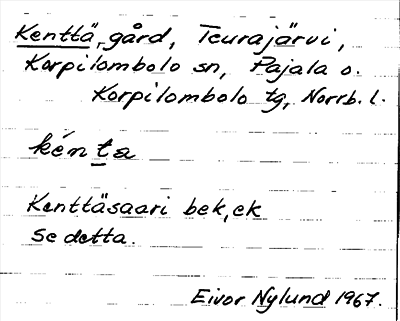 Kenttä, gård, Teurajärvi,
Korpilombolo sn, Pajala o.
Korpilombolo tg, Norrb. l.
kén ta
Kenttäsaari bek, ek
se detta.
Eivor Nylund 1967.